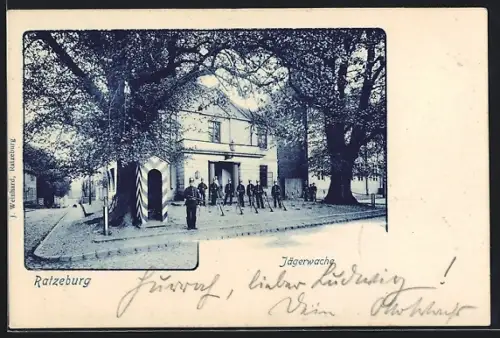 J. Weinhard, Ratzeburg
Jägerwache
Ratzeburg
Hurrah, lieber Ludwig!
Dein